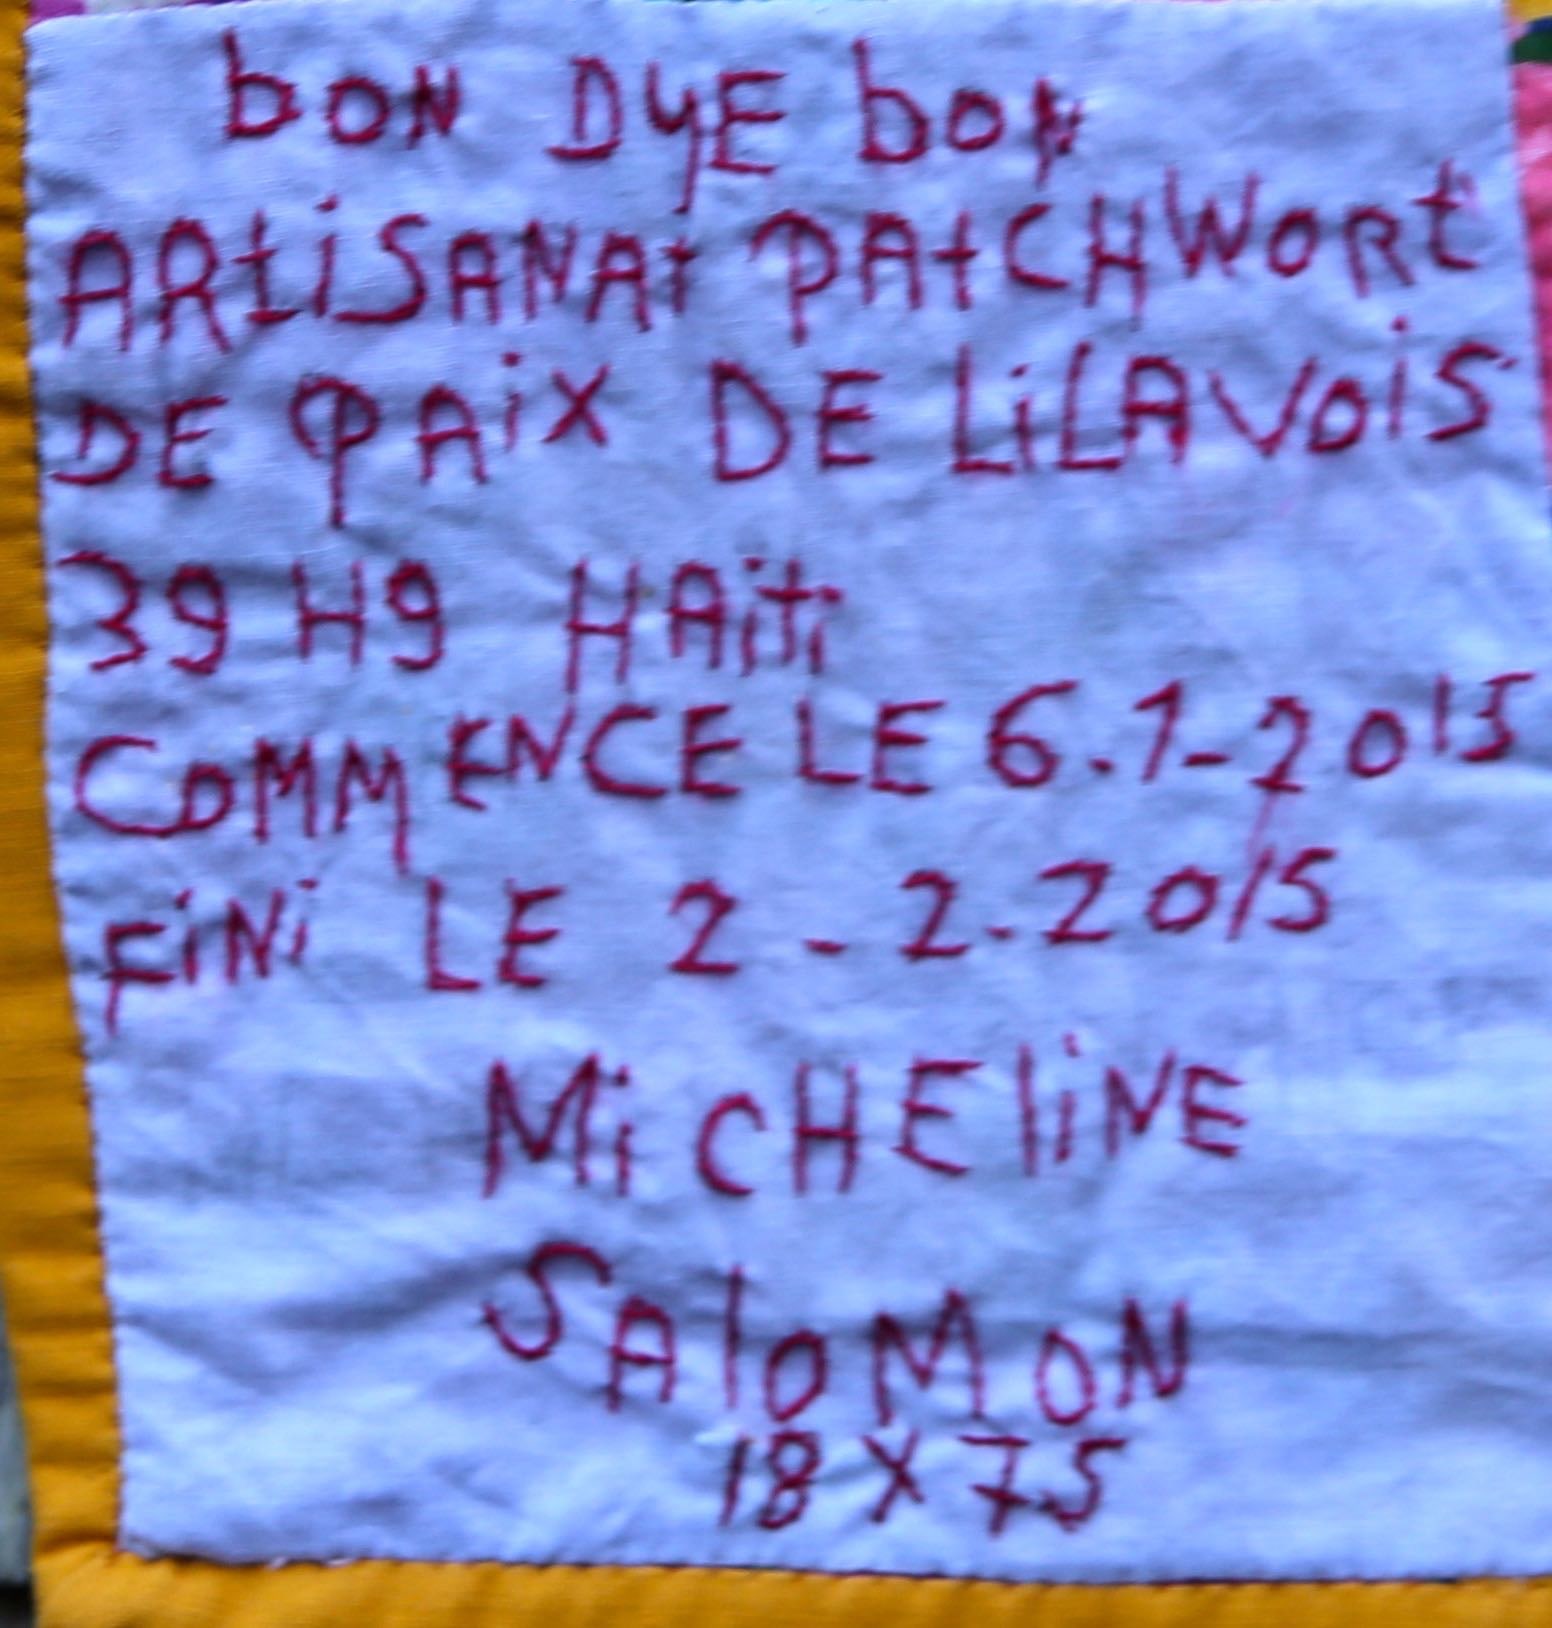 bON DYE bON
ARtiSANAt PAtCHWORt
DE PAiX DE LiLAVOiS
39 H9 HAiti
COMMENCE LE 6.1-2015
FiNi LE 2-2-2015
MiCHEliNE
SAlOMON
18 X 75